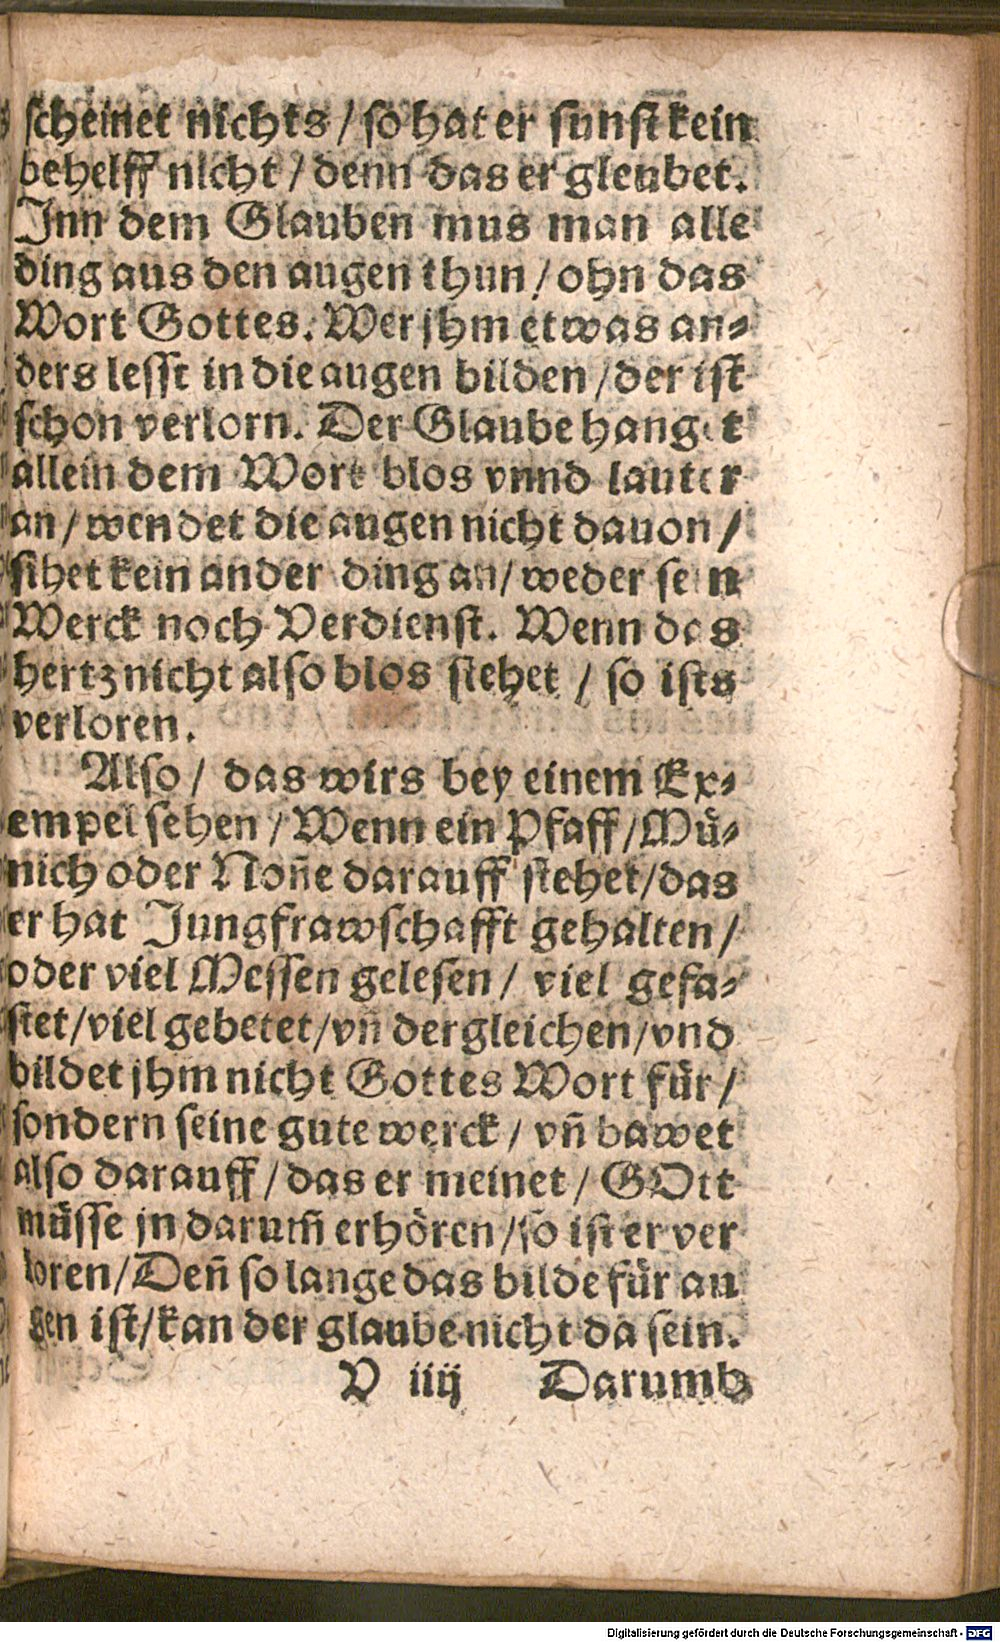 scheinet nichts / so hat er sunst kein
behelff nicht / denn das er gleubet.
Inn dem Glauben mus man alle
ding aus den augen thun / ohn das
Wort Gottes. Wer jhm etwas an⸗
ders lesst in die augen bilden / der ist
schon verlorn. Der Glaube hanget
allein dem Wort blos vnnd lauter
an / wendet die augen nicht dauon /
sihet kein ander ding an / weder sein
Werck noch Verdienst. Wenn das
hertz nicht also blos stehet / so ists
verloren.
Also / das wirs bey einem Ex⸗
empel sehen / Wenn ein Pfaff / Mü⸗
nich oder Nonñe darauff stehet / das
er hat Jungfrawschafft gehalten /
oder viel Messen gelesen / viel gefa⸗
stet / viel gebetet / vñ dergleichen / vnd
bildet jhm nicht Gottes Wort für /
sondern seine gute werck / vñ bawet
also darauff / das er meinet / GOtt
müsse jn darum̃ erhören / so ist er ver
loren / Deñ so lange das bilde für au
gen ist / kan der glaube nicht da sein.
V iiij Darumb
Digitalisierung gefördert durch die Deutsche Forschungsgemeinschaft - DFG